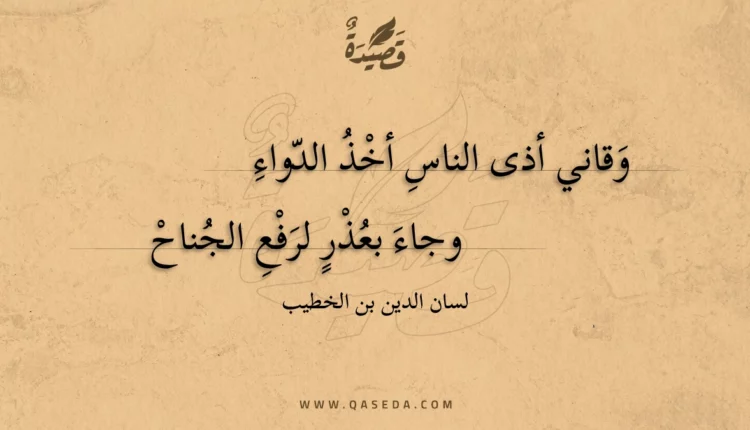 قَصِيْدَةٌ
وَقاني أذى الناسِ أخْذُ الدّواءِ
وجاءَ بعُذْرٍ لرَفْعِ الجُناحْ
لسان الدين بن الخطيب
WWW.QASEDA.COM